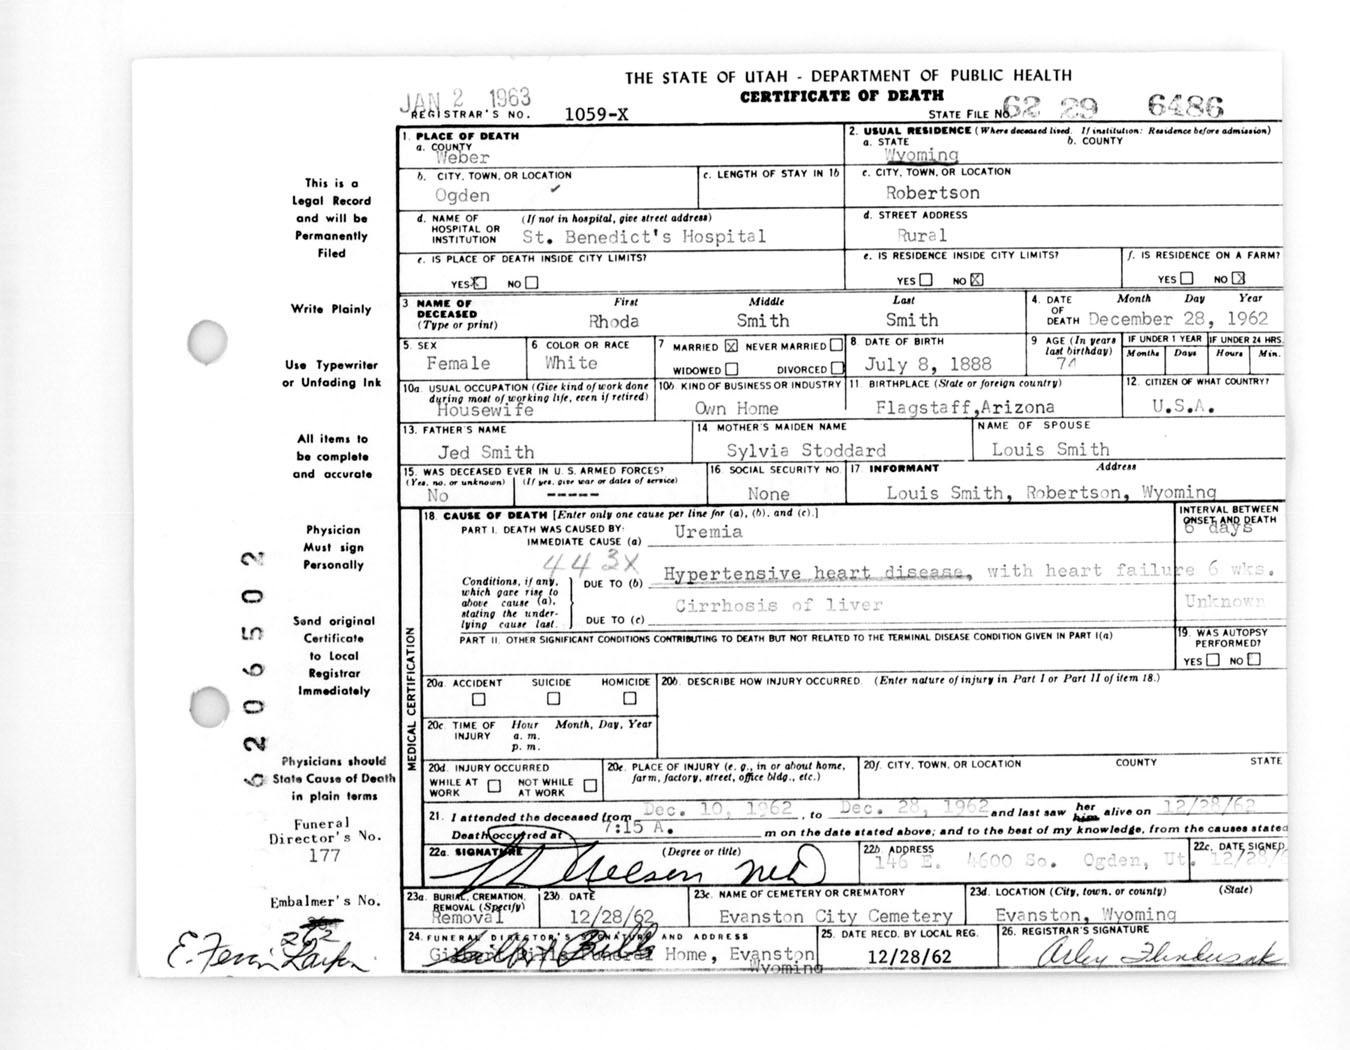 THE STATE OF UTAH - DEPARTMENT OF PUBLIC HEALTH
CERTIFICATE OF DEATH
JAN 2 1963
REGISTRAR'S NO. 1059-X
STATE FILE NO. 62 29 6486
1. PLACE OF DEATH
a. COUNTY
Weber
2. USUAL RESIDENCE (Where deceased lived. If institution: Residence before admission)
a. STATE b. COUNTY
Wyoming
b. CITY, TOWN, OR LOCATION
Ogden ✓
c. LENGTH OF STAY IN 1b
c. CITY, TOWN, OR LOCATION
Robertson
d. NAME OF HOSPITAL OR INSTITUTION (If not in hospital, give street address)
St. Benedict's Hospital
d. STREET ADDRESS
Rural
e. IS PLACE OF DEATH INSIDE CITY LIMITS?
YES ☒ NO ☐
e. IS RESIDENCE INSIDE CITY LIMITS?
YES ☐ NO ☒
f. IS RESIDENCE ON A FARM?
YES ☐ NO ☒
3 NAME OF DECEASED (Type or print) First Middle Last
Rhoda Smith Smith
4. DATE OF DEATH Month Day Year
December 28, 1962
5. SEX
Female
6 COLOR OR RACE
White
7 MARRIED ☒ NEVER MARRIED ☐
WIDOWED ☐ DIVORCED ☐
8 DATE OF BIRTH
July 8, 1888
9 AGE (In years last birthday)
74
IF UNDER 1 YEAR
Months Days
IF UNDER 24 HRS.
Hours Min.
10a. USUAL OCCUPATION (Give kind of work done during most of working life, even if retired)
Housewife
10b. KIND OF BUSINESS OR INDUSTRY
Own Home
11. BIRTHPLACE (State or foreign country)
Flagstaff,Arizona
12. CITIZEN OF WHAT COUNTRY?
U.S.A.
13. FATHER'S NAME
Jed Smith
14 MOTHER'S MAIDEN NAME
Sylvia Stoddard
NAME OF SPOUSE
Louis Smith
15. WAS DECEASED EVER IN U. S. ARMED FORCES?
(Yes, no, or unknown) (If yes, give war or dates of service)
No -----
16 SOCIAL SECURITY NO.
None
17 INFORMANT Address
Louis Smith, Robertson, Wyoming
MEDICAL CERTIFICATION
18. CAUSE OF DEATH [Enter only one cause per line for (a), (b), and (c).]
INTERVAL BETWEEN ONSET AND DEATH
PART I. DEATH WAS CAUSED BY:
IMMEDIATE CAUSE (a) Uremia 6 days
443X
Conditions, if any, which gave rise to above cause (a), stating the under-lying cause last.
DUE TO (b) Hypertensive heart disease, with heart failure 6 wks.
DUE TO (c) Cirrhosis of liver Unknown
PART II. OTHER SIGNIFICANT CONDITIONS CONTRIBUTING TO DEATH BUT NOT RELATED TO THE TERMINAL DISEASE CONDITION GIVEN IN PART I(a)
19. WAS AUTOPSY PERFORMED?
YES ☐ NO ☐
20a. ACCIDENT SUICIDE HOMICIDE
☐ ☐ ☐
20b. DESCRIBE HOW INJURY OCCURRED. (Enter nature of injury in Part I or Part II of item 18.)
20c TIME OF INJURY Hour Month, Day, Year
a. m.
p. m.
20d. INJURY OCCURRED
WHILE AT WORK ☐ NOT WHILE AT WORK ☐
20e. PLACE OF INJURY (e. g., in or about home, farm, factory, street, office bldg., etc.)
20f. CITY, TOWN, OR LOCATION COUNTY STATE
21. I attended the deceased from Dec. 10, 1962, to Dec. 28, 1962 and last saw her him alive on 12/28/62
Death occurred at 7:15 A. m on the date stated above; and to the best of my knowledge, from the causes stated
22a. SIGNATURE (Degree or title)
Nelson MD
22b. ADDRESS
146 E. 4600 So. Ogden, Ut.
22c. DATE SIGNED
12/28/6
23a. BURIAL, CREMATION, REMOVAL (Specify)
Removal
23b. DATE
12/28/62
23c. NAME OF CEMETERY OR CREMATORY
Evanston City Cemetery
23d. LOCATION (City, town, or county) (State)
Evanston, Wyoming
24. FUNERAL DIRECTOR'S SIGNATURE AND ADDRESS
Gilbert Bills Funeral Home, Evanston
Wyoming
25. DATE RECD. BY LOCAL REG.
12/28/62
26. REGISTRAR'S SIGNATURE
This is a
Legal Record
and will be
Permanently
Filed
Write Plainly
Use Typewriter
or Unfading Ink
All items to
be complete
and accurate
Physician
Must sign
Personally
Send original
Certificate
to Local
Registrar
Immediately
Physicians should
State Cause of Death
in plain terms
Funeral
Director's No.
177
Embalmer's No.
262
E. Larkin
6206502